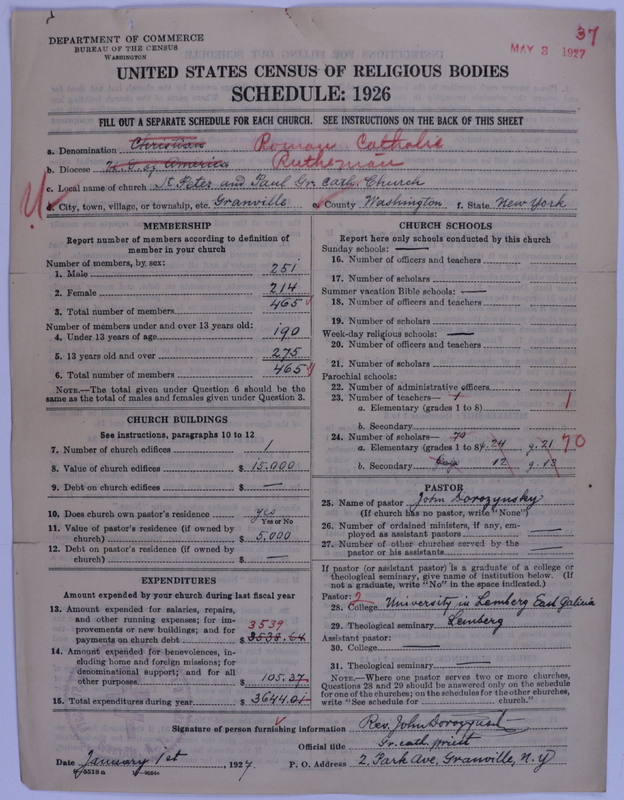 37
MAY 3 1927
DEPARTMENT OF COMMERCE
BUREAU OF THE CENSUS
WASHINGTON
UNITED STATES CENSUS OF RELIGIOUS BODIES
SCHEDULE: 1926
FILL OUT A SEPARATE SCHEDULE FOR EACH CHURCH. SEE INSTRUCTIONS ON THE BACK OF THIS SHEET
a. Denomination Christian Roman Catholic
b. Diocese U. S. of America Ruthenian
c. Local name of church St Peter and Paul Gr. Cath. Church
d. City, town, village, or township, etc. Granville e. County Washington f. State New York
MEMBERSHIP
Report number of members according to definition of
member in your church
Number of members, by sex:
1. Male 251
2. Female 214
3. Total number of members 465
Number of members under and over 13 years old:
4. Under 13 years of age 190
5. 13 years old and over 275
6. Total number of members 465
NOTE.—The total given under Question 6 should be
same as the total of males and females given under Question 3.
CHURCH BUILDINGS
See instructions, paragraphs 10 to 12
7. Number of church edifices 1
8. Value of church edifices $ 15.000
9. Debt on church edifices $ —
10. Does church own pastor's residence? yes
Yes or No
11. Value of pastor's residence (if owned by
church) $ 5.000
12. Debt on pastor's residence (if owned by
church) $ —
EXPENDITURES
Amount expended by your church during last fiscal year
13. Amount expended for salaries, repairs,
and other running expenses; for im-
provements or new buildings; and for
payments on church debt 3539 $ 3538.64
14. Amount expended for benevolences, in-
cluding home and foreign missions; for
denominational support; and for all
other purposes $ 105.37
15. Total expenditures during year $ 3644.01
CHURCH SCHOOLS
Report here only schools conducted by this church
Sunday schools: —
16. Number of officers and teachers
17. Number of scholars
Summer vacation Bible schools: —
18. Number of officers and teachers
19. Number of scholars
Week-day religious schools: —
20. Number of officers and teachers
21. Number of scholars
Parochial schools:
22. Number of administrative officers
23. Number of teachers— 1
a. Elementary (grades 1 to 8) 1
b. Secondary
24. Number of scholars— 70
a. Elementary (grades 1 to 8) 24 g. 21 70
b. Secondary 12 g. 13
PASTOR
25. Name of pastor John Dorozynsky
(If church has no pastor, write "None")
26. Number of ordained ministers, if any, em-
ployed as assistant pastors —
27. Number of other churches served by the
pastor or his assistants —
If pastor (or assistant pastor) is a graduate of a college or
theological seminary, give name of institution below. (If
not a graduate, write "No" in the space indicated.)
Pastor: 2
28. College University in Lemberg East Galicia
29. Theological seminary Lemberg
Assistant pastor:
30. College —
31. Theological seminary —
NOTE.—Where one pastor serves two or more churches,
Questions 28 and 29 should be answered only on the schedule
for one of the churches; on the schedules for the other churches,
write "See schedule for church."
Signature of person furnishing information Rev. John Dorozynsky
Official title Gr. cath. priest
Date January 1st, 1927 P. O. Address 2. Park Ave, Granville, N.Y